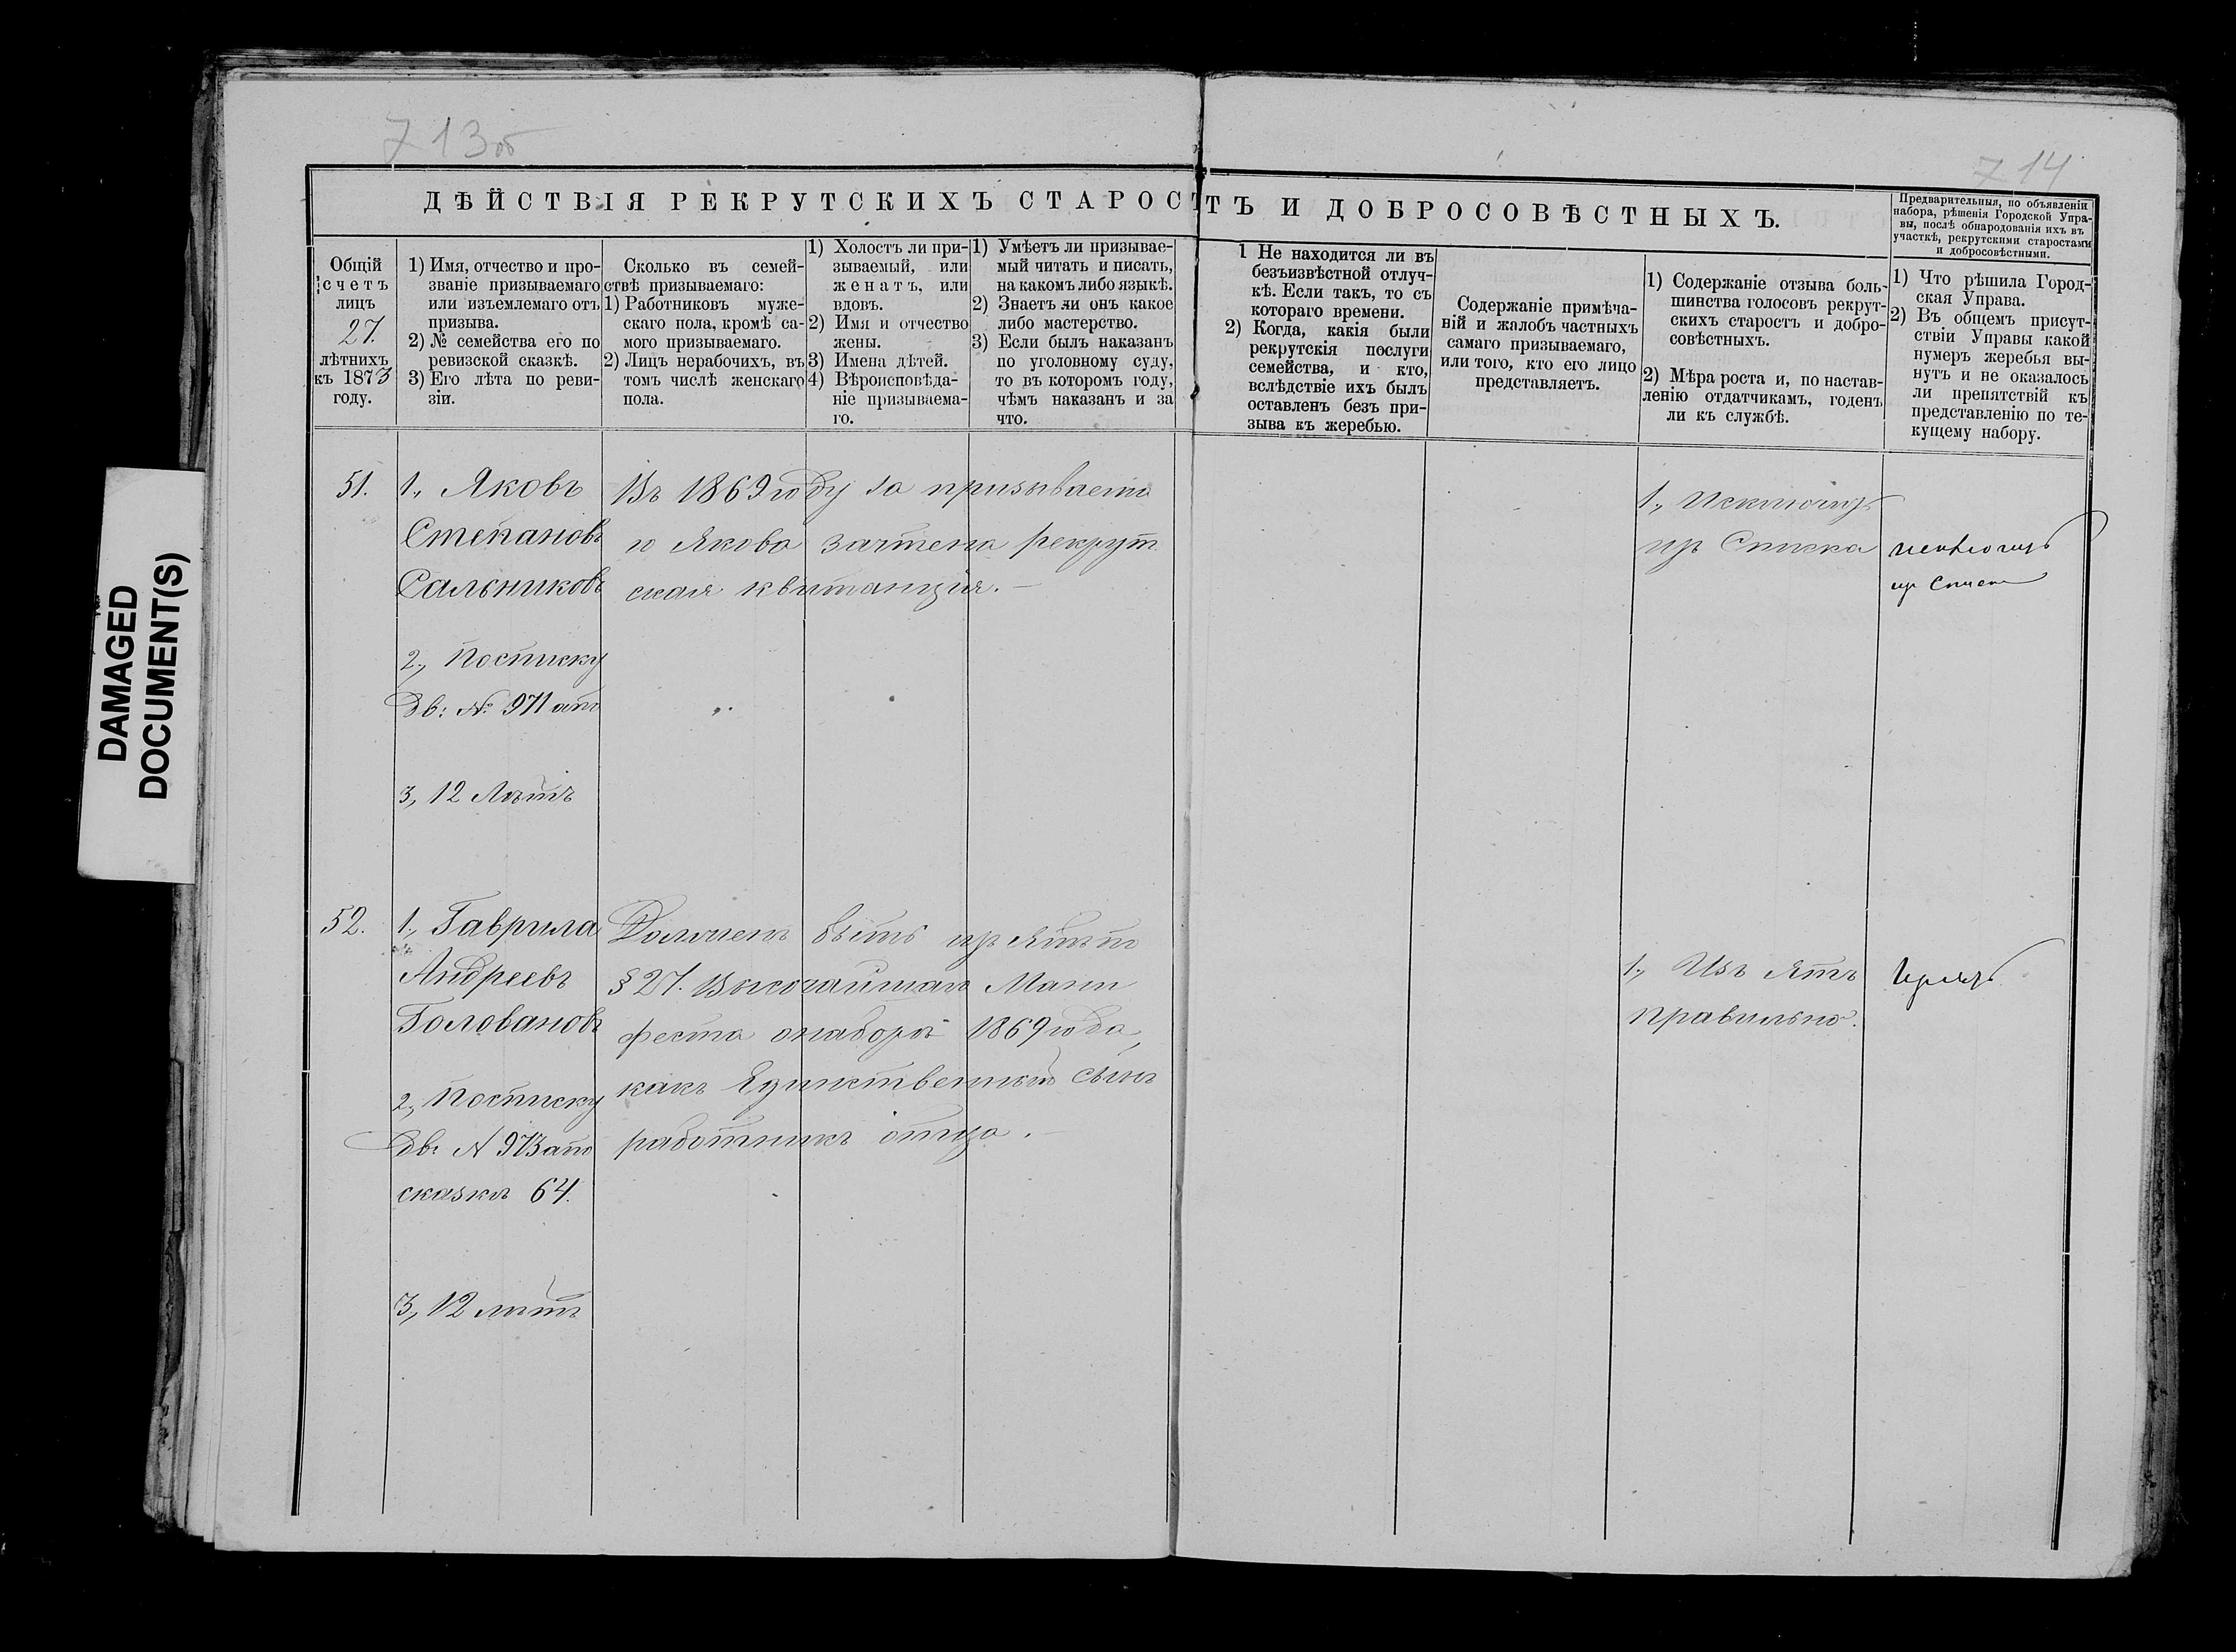 713об
714
DAMAGED
DOCUMENT(S)
ДѢЙСТВІЯ РЕКРУТСКИХЪ СТАРОСТЪ И ДОБРОСОВѢСТНЫХЪ.
Общій
счетъ
лицъ
27.
лѣтнихъ
къ 1873
году.
1) Имя, отчество и про-
званіе призываемаго
или изъемлемаго отъ
призыва.
2) № семейства его по
ревизской сказкѣ.
3) Его лѣта по реви-
зіи.
Сколько въ семей-
ствѣ призываемаго:
1) Работниковъ муже-
скаго пола, кромѣ са-
мого призываемаго.
2) Лицъ нерабочихъ, въ
томъ числѣ женскаго
пола.
1) Холостъ ли при-
зываемый, или
женатъ, или
вдовъ.
2) Имя и отчество
жены.
3) Имена дѣтей.
4) Вѣроисповѣда-
ніе призываема-
го.
1) Умѣетъ ли призывае-
мый читать и писать,
на какомъ либо языкѣ.
2) Знаетъ ли онъ какое
либо мастерство.
3) Если былъ наказанъ
по уголовному суду,
то въ которомъ году,
чѣмъ наказанъ и за
что.
1 Не находится ли въ
безъизвѣстной отлуч-
кѣ. Если такъ, то съ
котораго времени.
2) Когда, какія были
рекрутскія послуги
семейства, и кто,
вслѣдствіе ихъ былъ
оставленъ безъ при-
зыва къ жеребью.
Содержаніе примѣча-
ній и жалобъ частныхъ
самаго призываемаго,
или того, кто его лицо
представляетъ.
1) Содержаніе отзыва боль-
шинства голосовъ рекрут-
скихъ старостъ и добро-
совѣстныхъ.
2) Мѣра роста и, по настав-
ленію отдатчикамъ, годенъ
ли къ службѣ.
Предварительныя, по объявленіи
набора, рѣшенія Городской Упра-
вы, послѣ обнародованія ихъ въ
участкѣ, рекрутскими старостами
и добросовѣстными.
1) Что рѣшила Город-
ская Управа.
2) Въ общемъ присут-
ствіи Управы какой
нумеръ жеребья вы-
нутъ и не оказалось
ли препятствій къ
представленію по те-
кущему набору.
51.
1., Яковъ
Степановъ
Сальниковъ
2., По списку
Дв: №. 971 а по
3., 12 Лѣтъ
Въ 1869 году за призываема
го Якова зачтена рекрут
ская квитанція. —
1., Исключить
изъ Списка
исключить
изъ Списка
52.
1., Гаврила
Андреевъ
Головановъ
2., По списку
Дв: № 973 а по
сказкѣ 64.
3., 12 лѣтъ
Должен быть изъятъ по
§ 27. Высочайшаго Мани
феста о наборѣ 1869 года,
какъ Единственный сынъ
работникъ отца. —
1., Изъятъ
правильно.